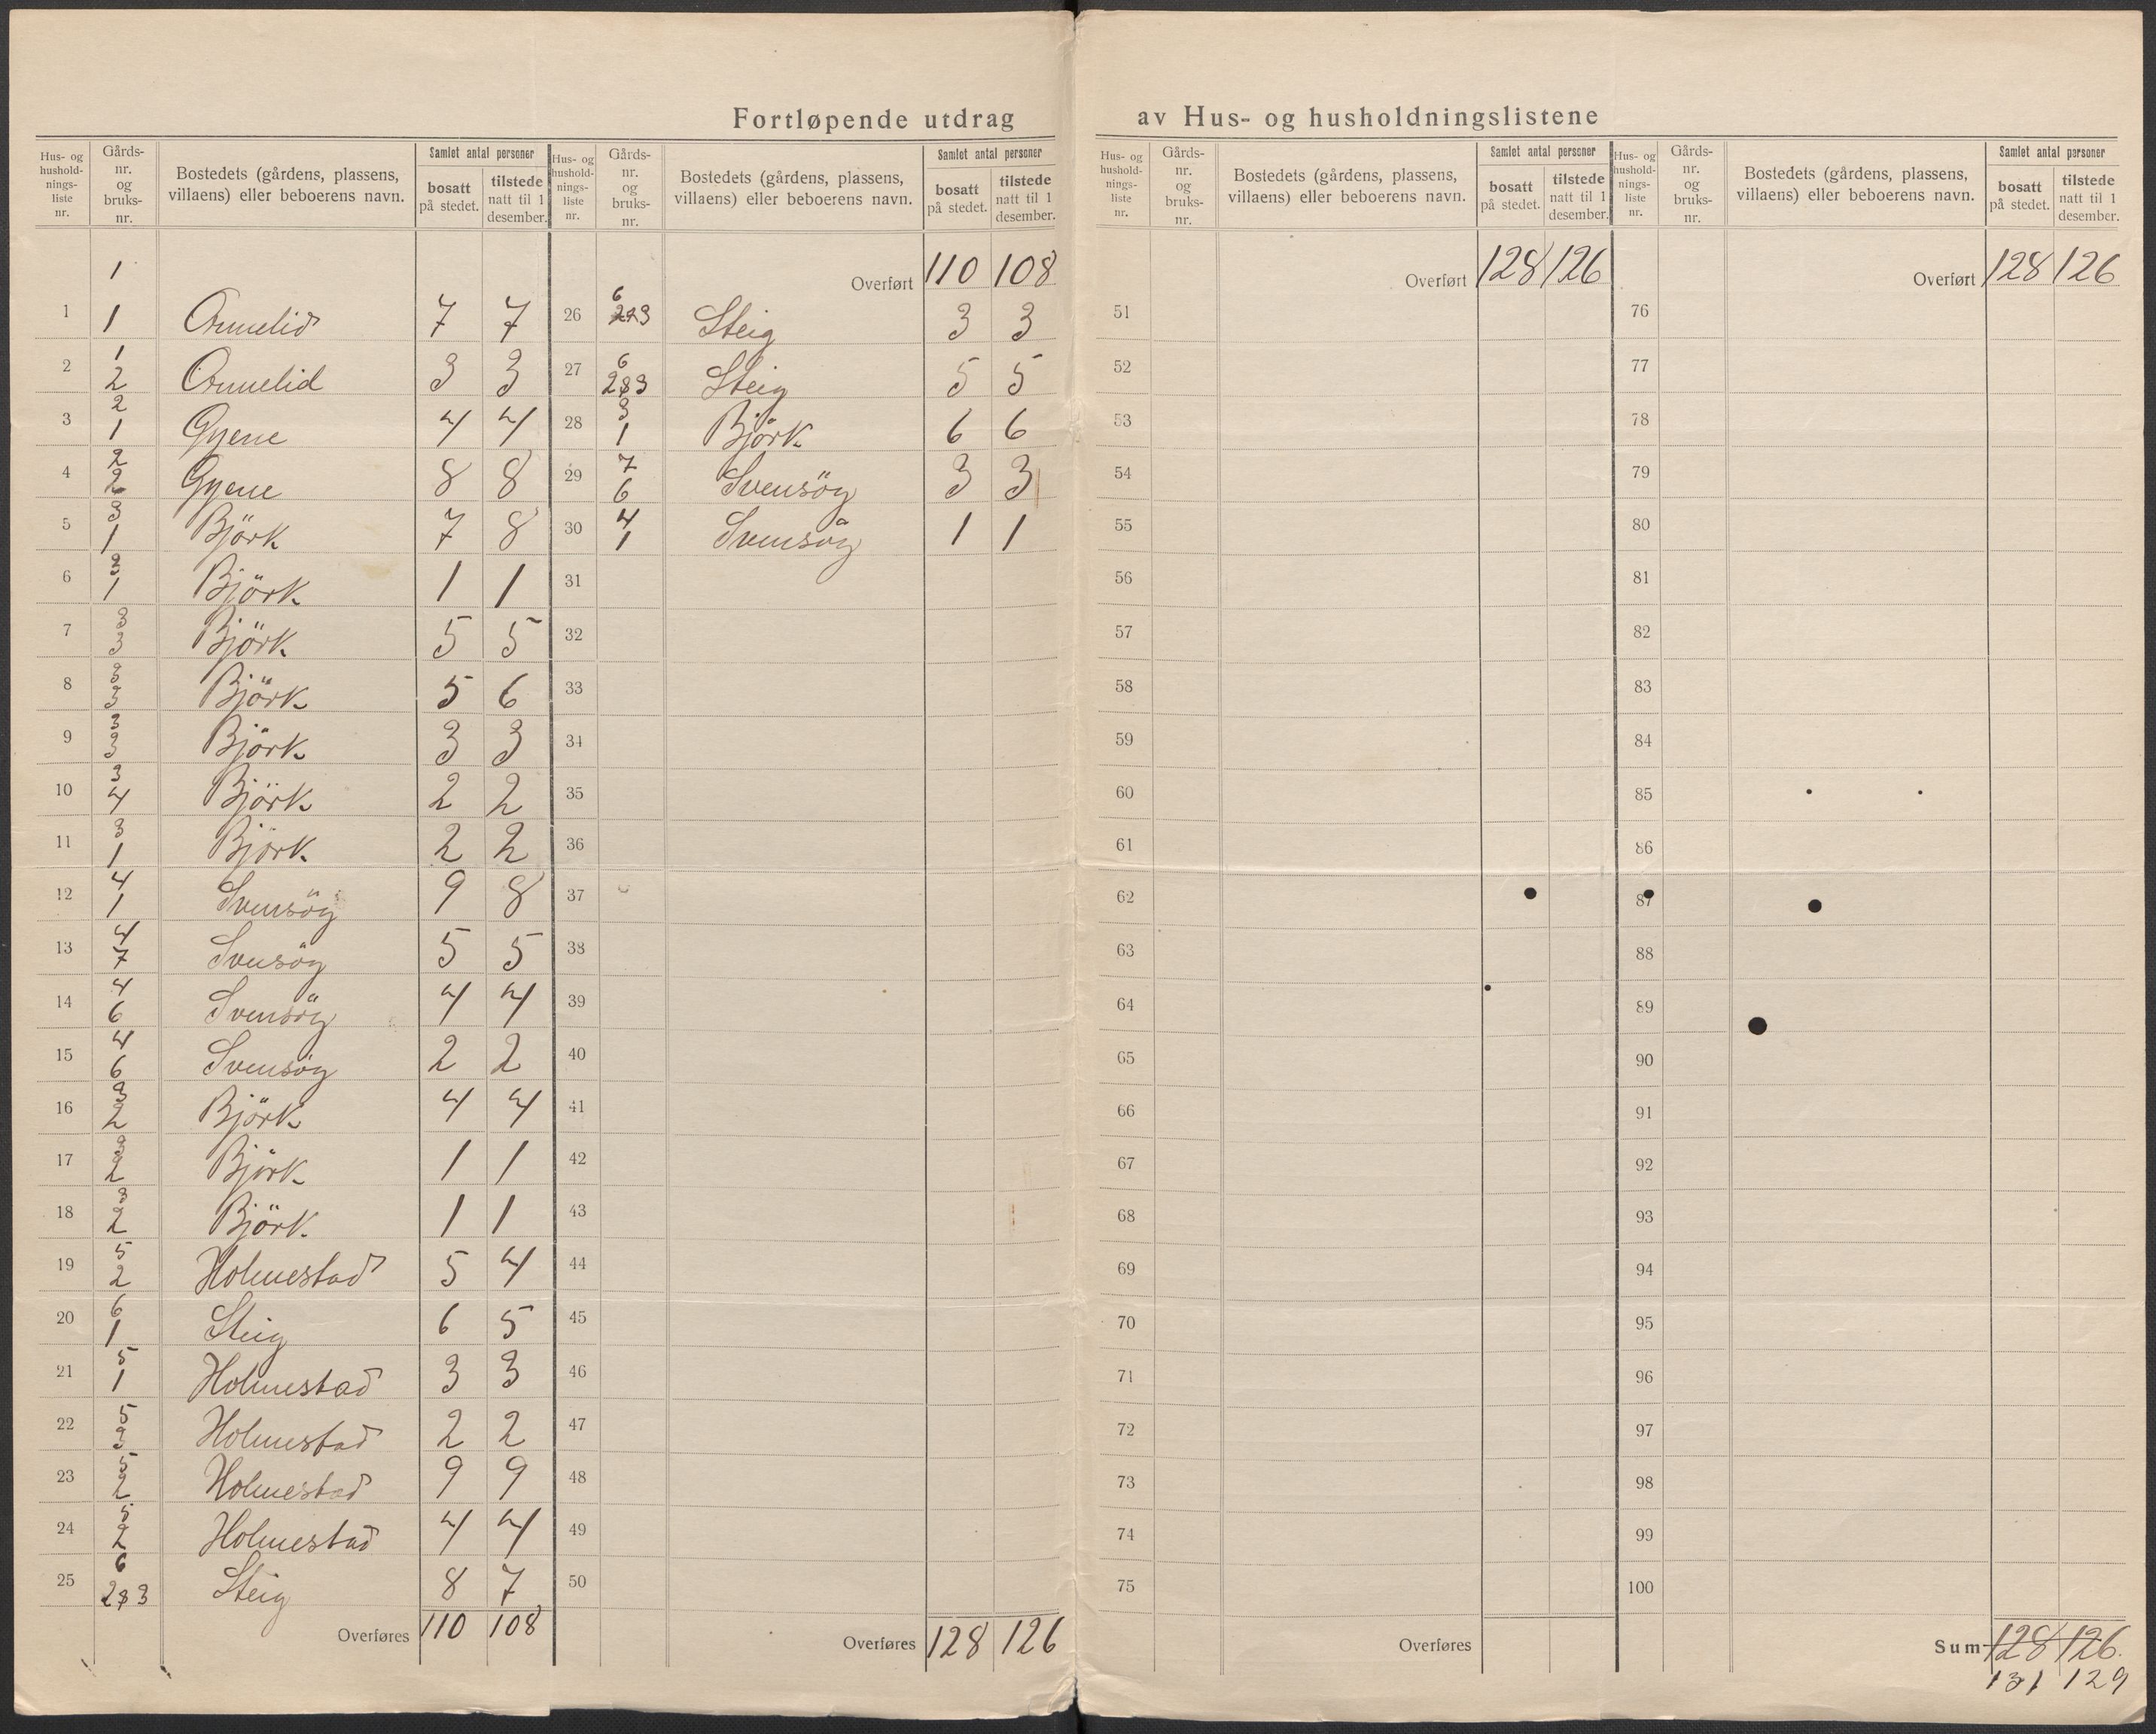 Fortløpende utdrag av Hus- og husholdningslistene
Hus- og hushold-nings-liste nr. Gårds-nr. og bruks-nr. Bostedets (gårdens, plassens, villaens) eller beboerens navn. Samlet antal personer bosatt på stedet. tilstede natt til 1 desember.
1
1 1 Ormelid 7 7
2 1 2 Ormelid 3 3
3 2 1 Gyene 4 4
4 2 2 Gyene 8 8
5 3 1 Björk 7 8
6 3 1 Björk 1 1
7 3 3 Björk 5 5
8 3 3 Björk 5 6
9 3 3 Björk 3 3
10 3 4 Björk 2 2
11 3 1 Björk 2 2
12 4 1 Svensöy 9 8
13 4 7 Svensöy 5 5
14 4 6 Svensöy 4 4
15 4 6 Svensöy 2 2
16 3 2 Björk 4 4
17 3 2 Björk 1 1
18 3 2 Björk 1 1
19 5 2 Holmestad 5 4
20 6 1 Steig 6 5
21 5 1 Holmestad 3 3
22 5 3 Holmestad 2 2
23 5 2 Holmestad 9 9
24 5 2 Holmestad 4 4
25 6 2&3 Steig 8 7
Overføres 110 108
Hus- og hushold-nings-liste nr. Gårds-nr. og bruks-nr. Bostedets (gårdens, plassens, villaens) eller beboerens navn. Samlet antal personer bosatt på stedet. tilstede natt til 1 desember.
Overført 110 108
26 6 2&3 Steig 3 3
27 6 2&3 Steig 5 5
28 3 1 Björk 6 6
29 7 6 Svensöy 3 3
30 4 1 Svensöy 1 1
31
32
33
34
35
36
37
38
39
40
41
42
43
44
45
46
47
48
49
50
Overføres 128 126
Hus- og hushold-nings-liste nr. Gårds-nr. og bruks-nr. Bostedets (gårdens, plassens, villaens) eller beboerens navn. Samlet antal personer bosatt på stedet. tilstede natt til 1 desember.
Overført 128 126
51
52
53
54
55
56
57
58
59
60
61
62
63
64
65
66
67
68
69
70
71
72
73
74
75
Overføres
Hus- og hushold-nings-liste nr. Gårds-nr. og bruks-nr. Bostedets (gårdens, plassens, villaens) eller beboerens navn. Samlet antal personer bosatt på stedet. tilstede natt til 1 desember.
Overført 128 126
76
77
78
79
80
81
82
83
84
85
86
87
88
89
90
91
92
93
94
95
96
97
98
99
100
Sum 128 126
131 129